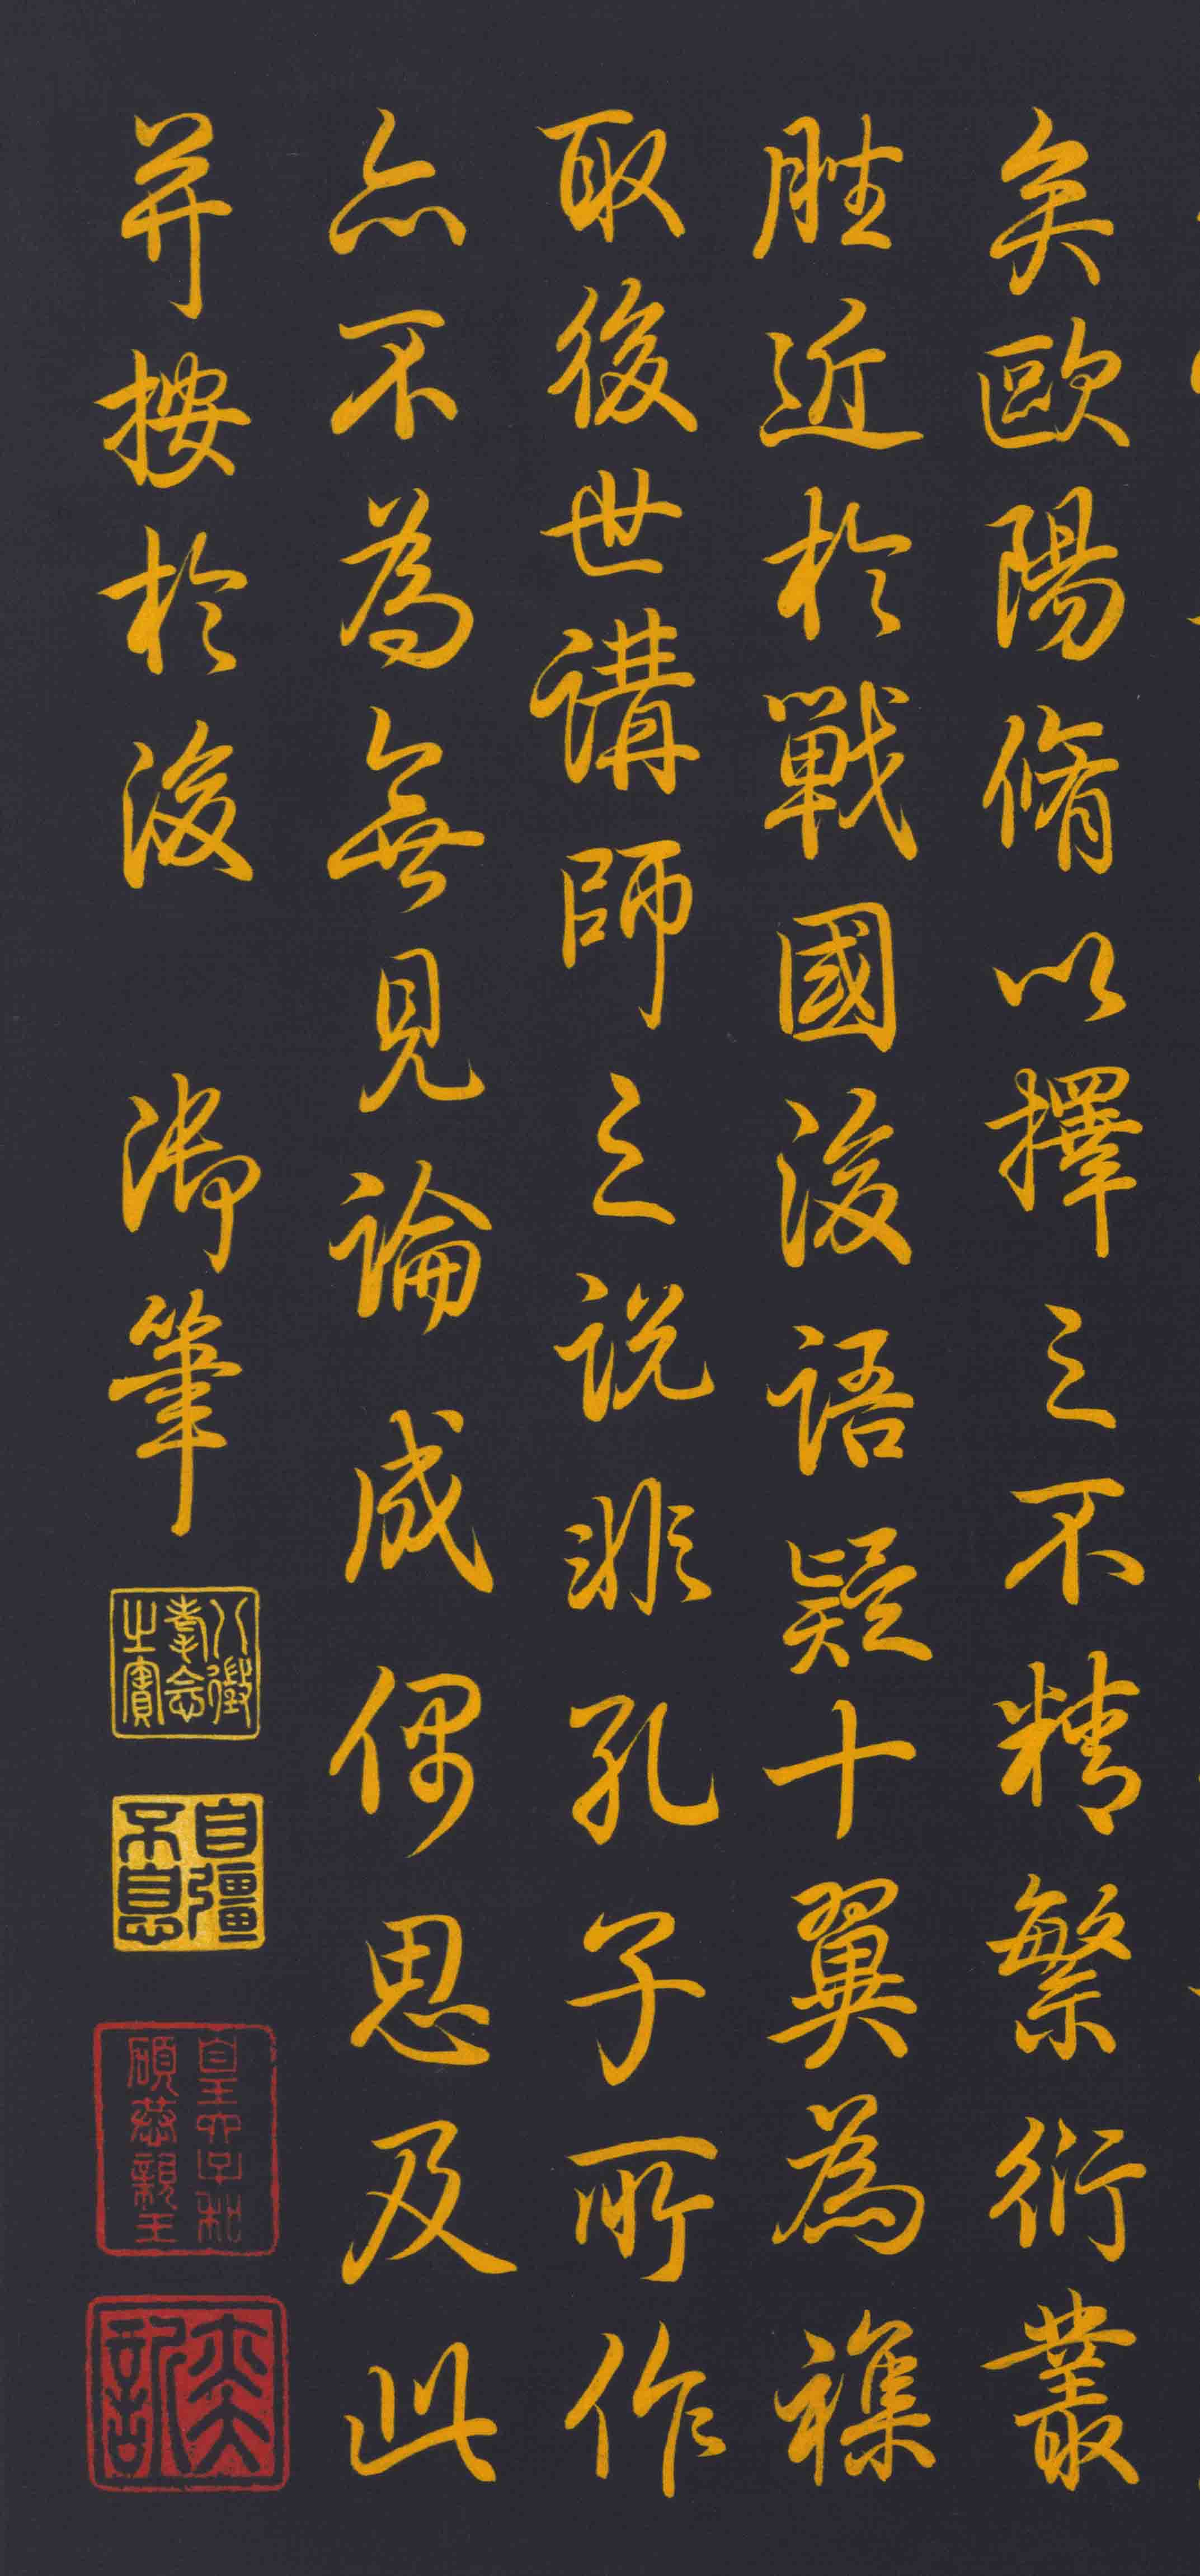 矣歐陽脩以擇之不精繁衍叢
脞近於戰國後語疑十翼為襍
取後世講師之説非孔子所作
亦不為無見論成偶思及此
并按於後 御筆
八徵耄念之寶
自彊不息
皇六子和碩恭親王